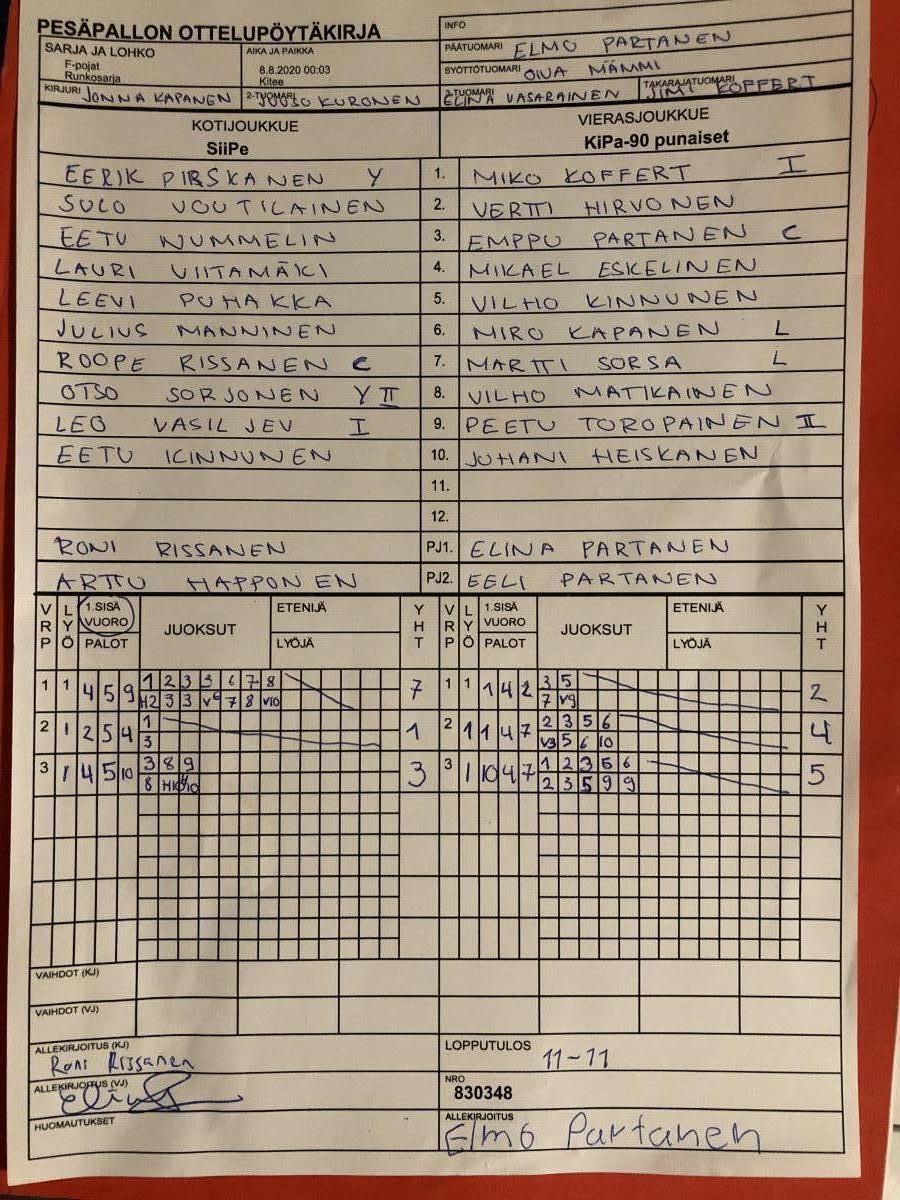 PESÄPALLON OTTELUPÖYTÄKIRJA
INFO
SARJA JA LOHKO
F-pojat
Runkosarja
AIKA JA PAIKKA
8.8.2020 00:03
Kitee
PÄÄTUOMARI ELMO PARTANEN
SYÖTTÖTUOMARI OIVA MÄMMI
KIRJURI JONNA KAPANEN
2-TUOMARI JOUKO KURONEN
3-TUOMARI ELINA VASARAINEN
TAKARAJATUOMARI JIMI KOFFERT
KOTIJOUKKUE
SiiPe
VIERASJOUKKUE
KiPa-90 punaiset
EERIK PIRSKANEN Y 1. MIKO KOFFERT I
SULO VOUTILAINEN 2. VERTTI HIRVONEN
EETU NUMMELIN 3. EMPPU PARTANEN C
LAURI VIITAMÄKI 4. MIKAEL ESKELINEN
LEEVI PUHAKKA 5. VILHO KINNUNEN
JULIUS MANNINEN 6. MIRO KAPANEN L
ROOPE RISSANEN C 7. MARTTI SORSA L
OTSO SORJONEN Y II 8. VILHO MATIKAINEN
LEO VASILJEV I 9. PEETU TOROPAINEN II
EETU KINNUNEN 10. JUHANI HEISKANEN
11.
12.
RONI RISSANEN PJ1. ELINA PARTANEN
ARTTU HAPPONEN PJ2. EELI PARTANEN
VRP LYÖ 1.SISÄ VUORO PALOT JUOKSUT ETENIJÄ LYÖJÄ YHT VRP LYÖ 1.SISÄ VUORO PALOT JUOKSUT ETENIJÄ LYÖJÄ YHT
1 1 4 5 9 1 2 3 3 6 7 8 7 1 1 1 4 2 3 5 2
H2 3 3 V6 7 8 V10 7 V9
2 1 2 5 4 1 1 2 1 1 4 7 2 3 5 6 4
3 V3 5 6 10
3 1 4 5 10 3 8 9 3 3 1 10 4 7 1 2 3 5 6 5
8 H10 2 3 5 9 9
VAIHDOT (KJ)
VAIHDOT (VJ)
ALLEKIRJOITUS (KJ)
Roni Rissanen
LOPPUTULOS 11-11
ALLEKIRJOITUS (VJ)
NRO
830348
HUOMAUTUKSET
ALLEKIRJOITUS
Elmo Partanen